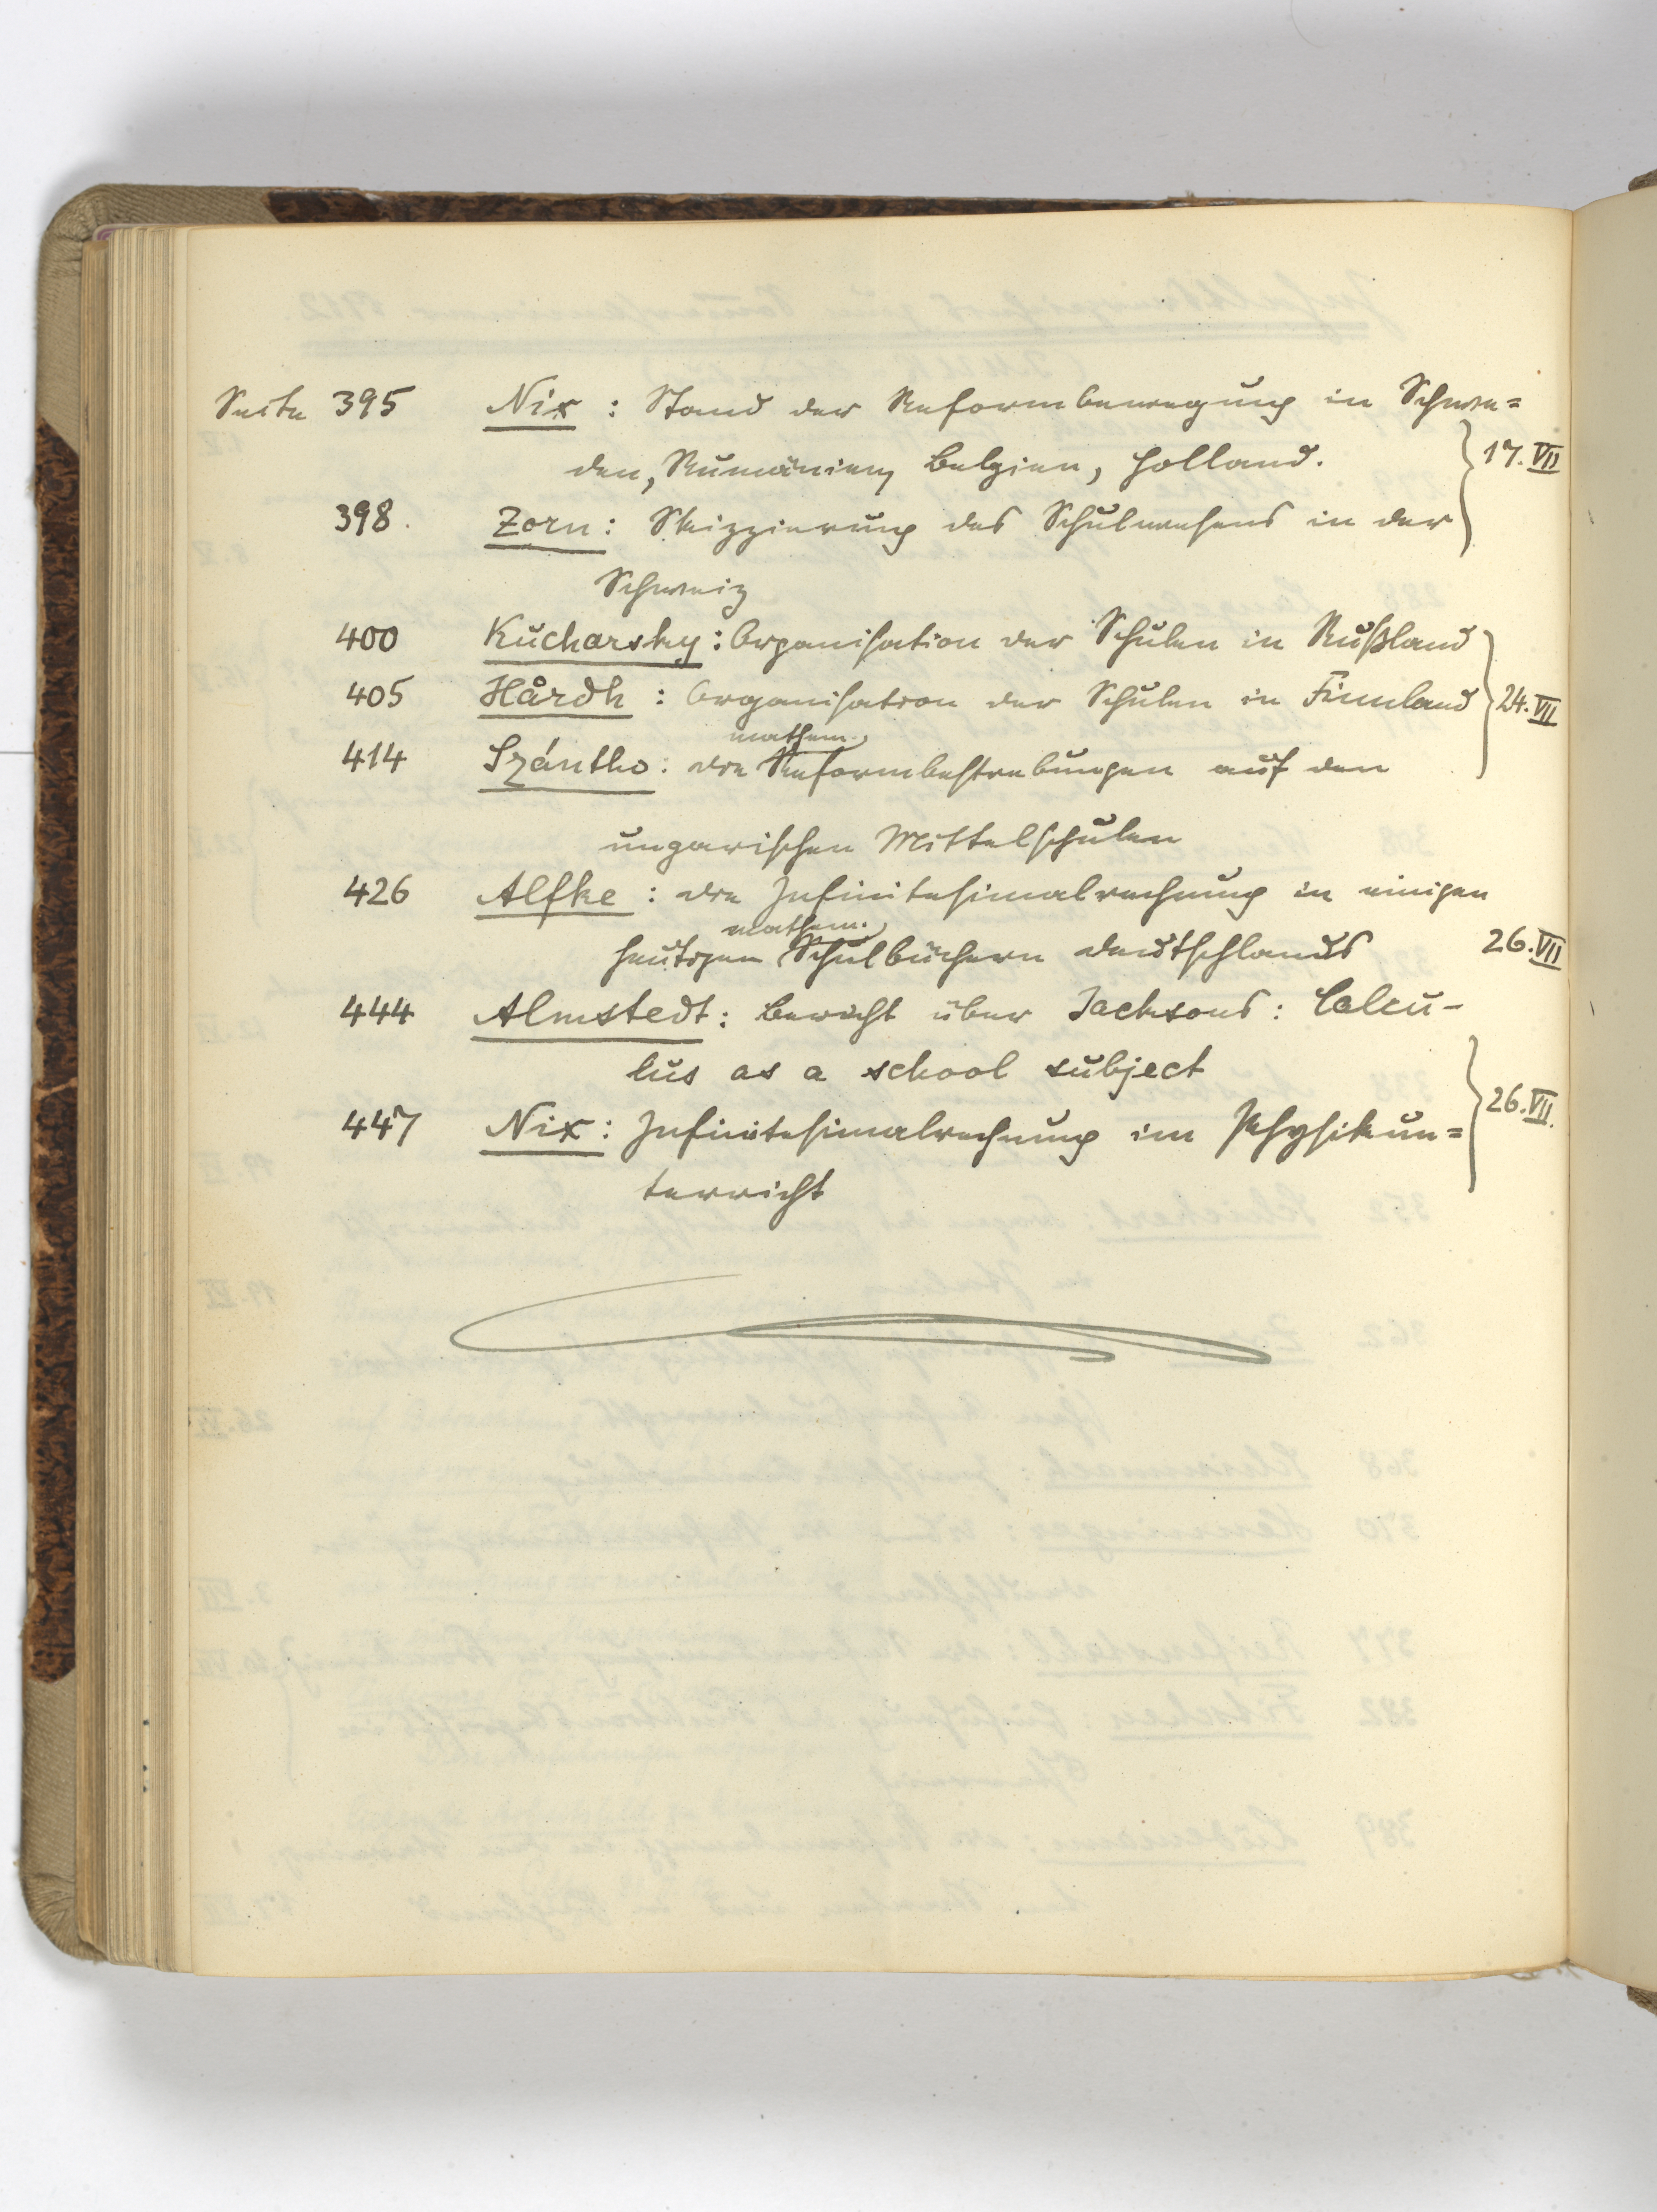 Seite 395 Nix : Stand der Reformbewegung in Schwe=
den, Rumänien, Belgien, Holland.
17. VII
398. Zorn : Skizzierung des Schulwesens in der
Schweiz
400 Kucharsky : Organisation der Schulen in Rußland
405 Hårdh : Organisation der Schulen in Finnland
24. VII
mathem.
414 Szántho : die Reformbestrebungen auf den
ungarischen Mittelschulen
426 Alfke : die Infinitesimalrechnung in einigen
mathem.
heutigen Schulbüchern Deutschlands
26. VII
444 Almstedt : Bericht über Jacksons : Calcu-
lus as a school subject
26. VII.
447 Nix : Infinitesimalrechnung im Physikun=
terricht